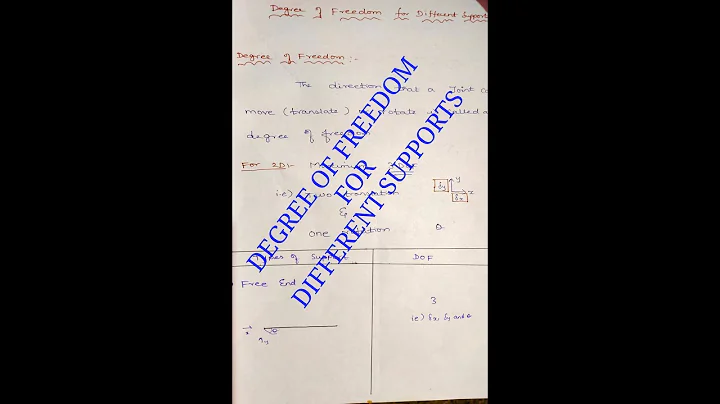 Degree of Freedom for Different Support
Degree of Freedom:-
The direction that a Joint co
move (translate) rotate is called a
degree of freedom
For 2D:- Maximum
i.e) Two translation
&
One rotation
y
δy
x
δx
θ
Types of Support
DOF
Free End
3
ie) δx, δy and θ
x
y
θ
DEGREE OF FREEDOM
FOR
DIFFERENT SUPPORTS